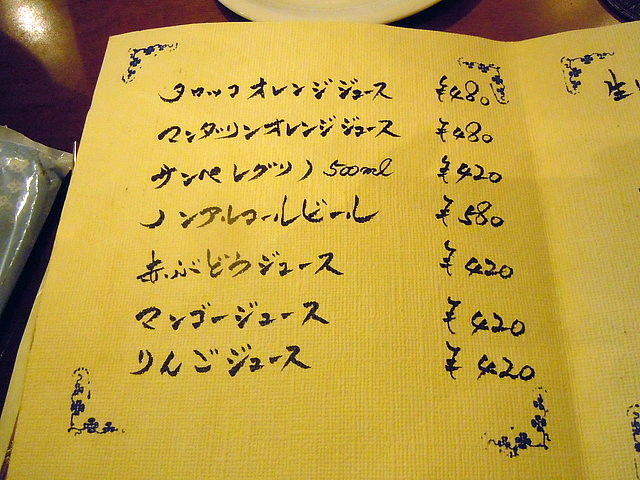 タロッコオレンジジュース ¥480
マンダリンオレンジジュース ¥480
サンペレグリノ 500ml ¥420
ノンアルコールビール ¥580
赤ぶどうジュース ¥420
マンゴージュース ¥420
りんごジュース ¥420